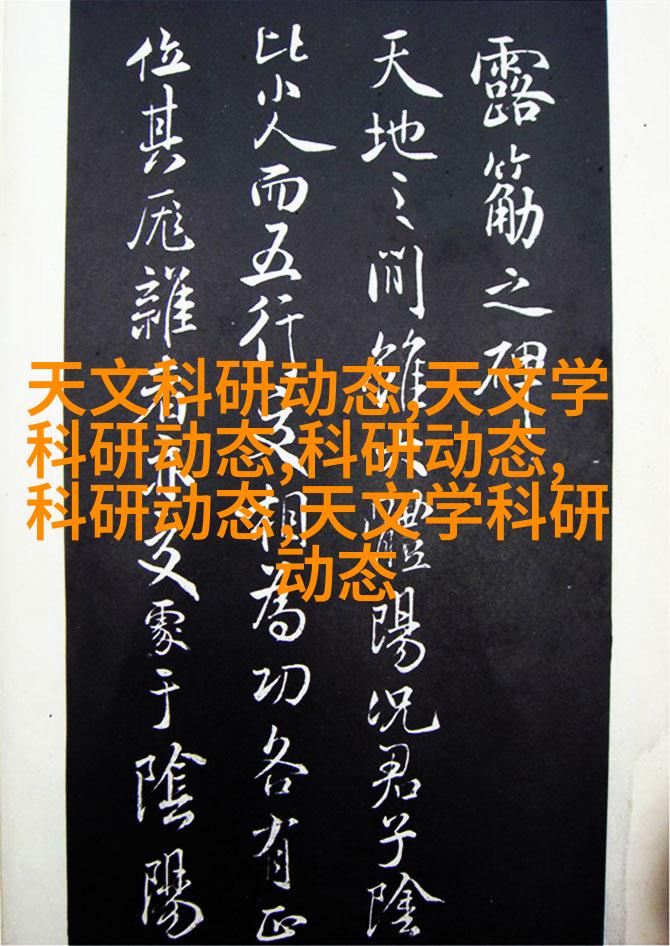 露筋之碑
天地之間雖大體陽況君子陰
比小人而五行相為功各有正
位其厖雜者亦處于陰陽
天文科研动态,天文学
科研动态,科研动态,
科研动态,天文学科研
动态